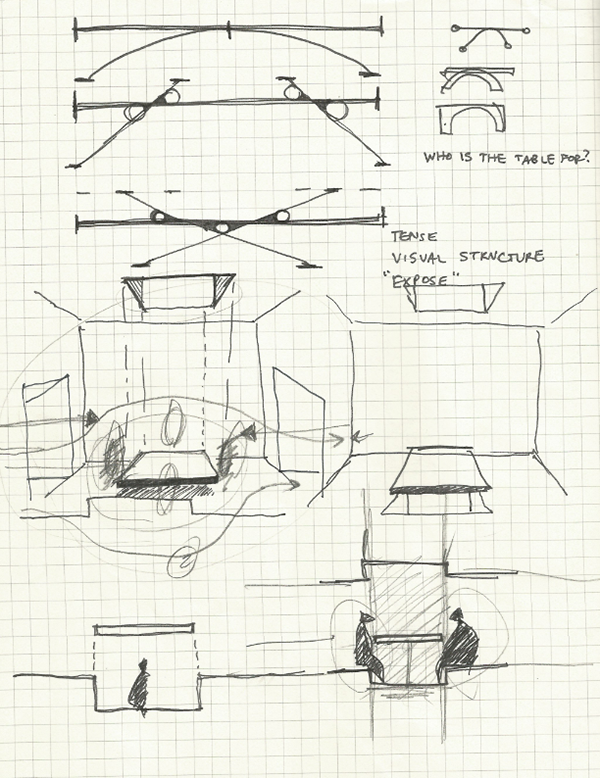 WHO IS THE TABLE FOR?
TENSE
VISUAL STRUCTURE
"EXPOSE"